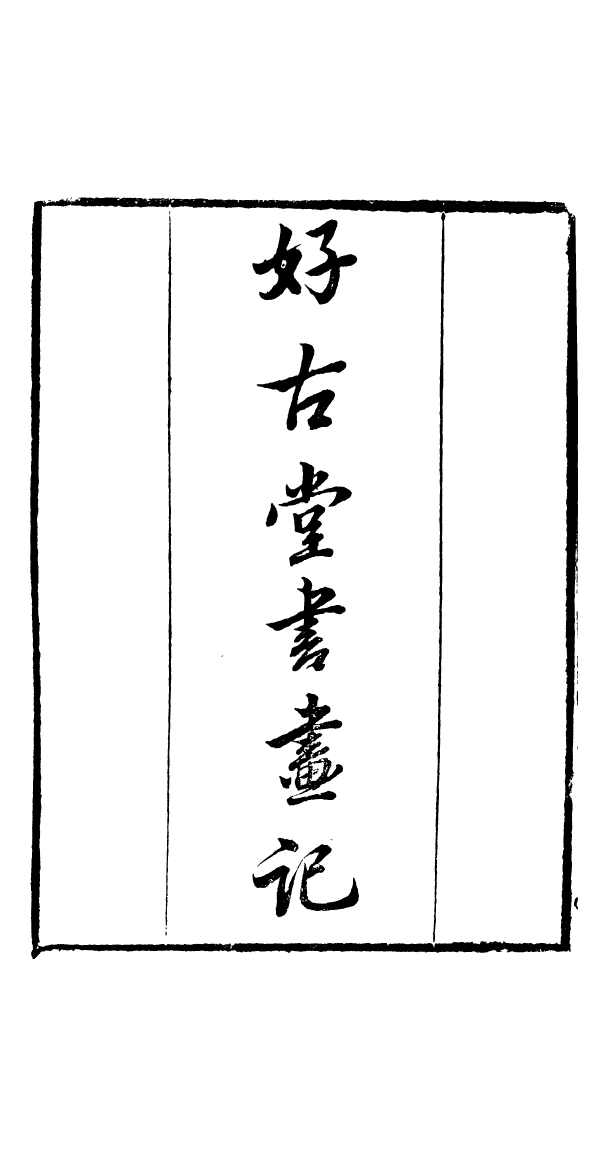 好古堂書畫記